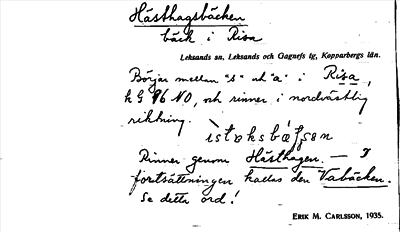 Hästhagsbäcken
bäck i Risa
Leksands sn, Leksands och Gagnefs tg, Kopparbergs län.
Börjar mellan "s" och "a" i Risa,
k G 86 NO, och rinner i nordvästlig
riktning.
Rinner genom Hästhagen. — I
fortsättningen kallas den Vabäcken.
Se detta ord!
ERIK M. CARLSSON, 1935.